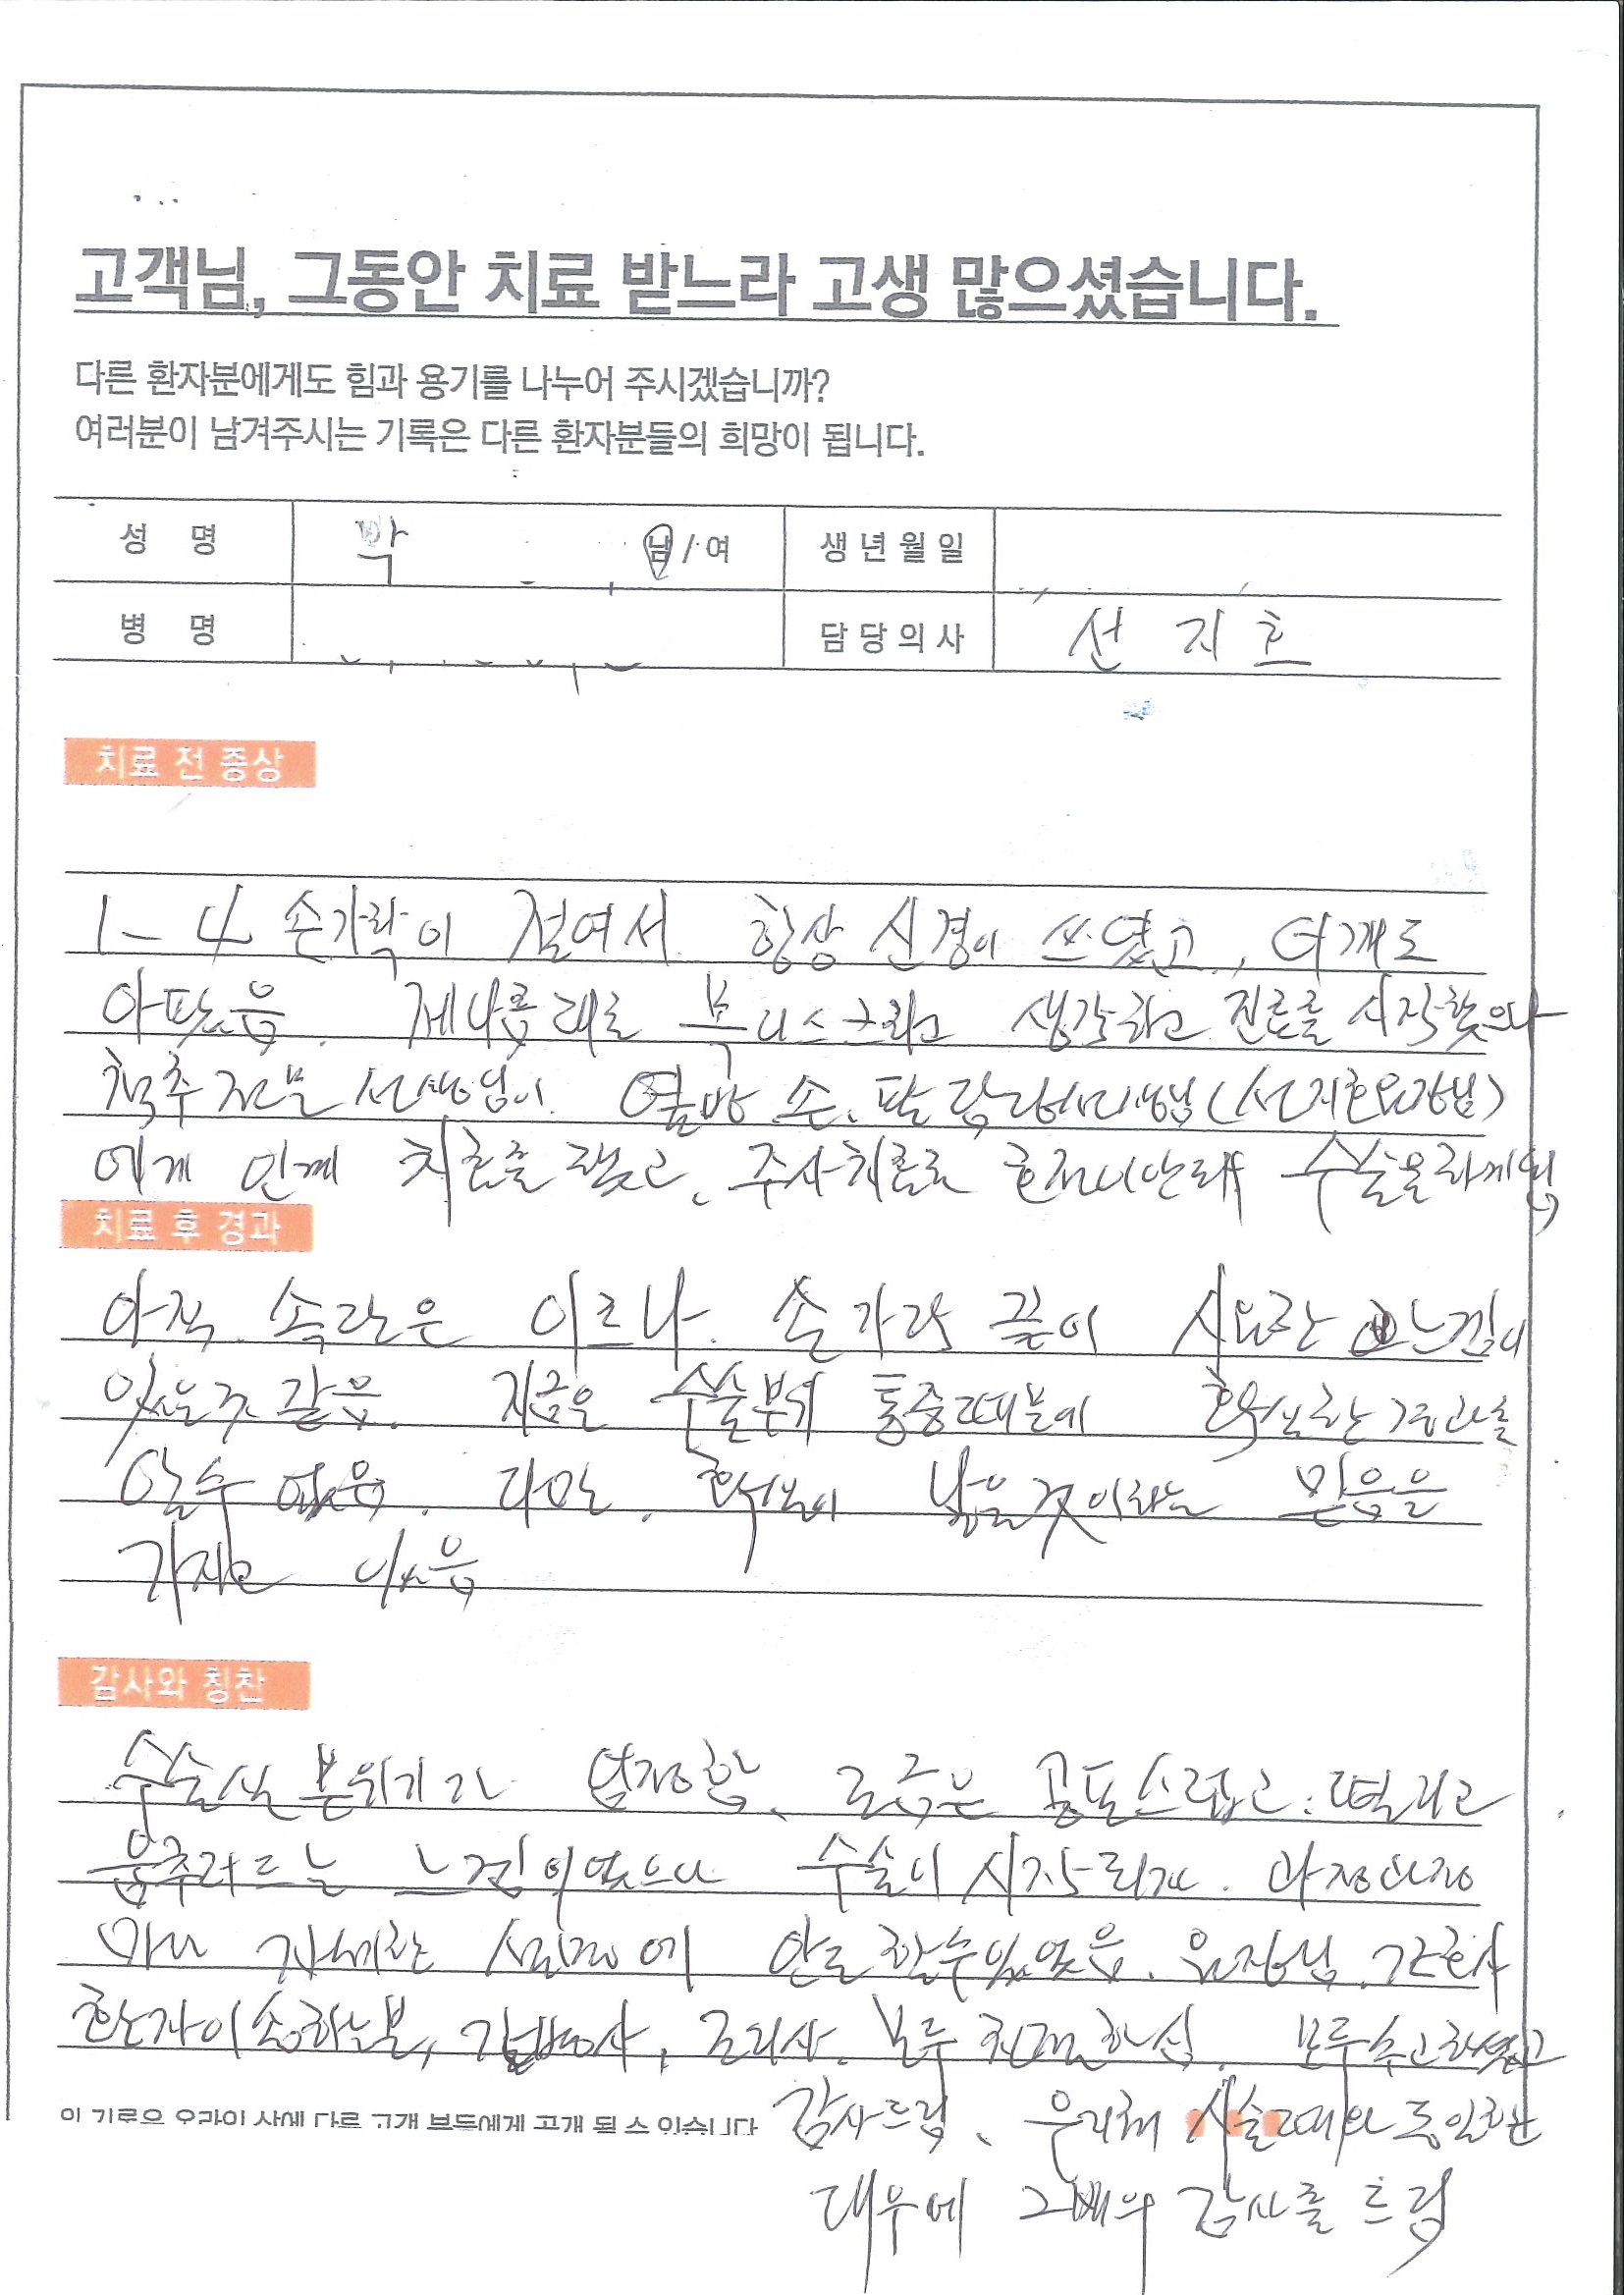 고객님, 그동안 치료 받느라 고생 많으셨습니다.
다른 환자분에게도 힘과 용기를 나누어 주시겠습니까?
여러분이 남겨주시는 기록은 다른 환자분들의 희망이 됩니다.
성 명 박 남/여 생년월일
병 명 담당의사 선지호
치료 전 증상
1-4 손가락이 절여서 항상 신경이 쓰였고, 어깨도
아팠음. 제나름대로 목디스크라고 생각하고 진료를 시작했으나
척추 전문 선생님이 옆방 손.팔 담당선생님(선지호원장님)
에게 인계 치료를 했고, 주사치료로 호전이 안되 수술을 하게 됨
치료 후 경과
아직 속단은 이르나. 손가락 끝이 시원한 느낌이
있는것 같음. 지금은 수술부위 통증때문에 확실한 경과를
알수 없음. 다만. 확실히 낳을것이라는 믿음을
가지고 있음
감사와 칭찬
수술실 분위기가 냉정함, 조금은 공포스럽고. 떨리고
움추려드는 느낌이었으나 수술이 시작되자. 과정과정
마다 자세한 설명에 안도할수 있었음. 원장님. 간호사
환자이송하는분, 간병사, 조리사. 모두 친절하심. 모두 수고하셨고
이 기록은 온라인 상에 다른 고객 분들에게 공개 될 수 있습니다 감사드림, 우리처 시술때와 동일한
대우에 그배의 감사를 드림